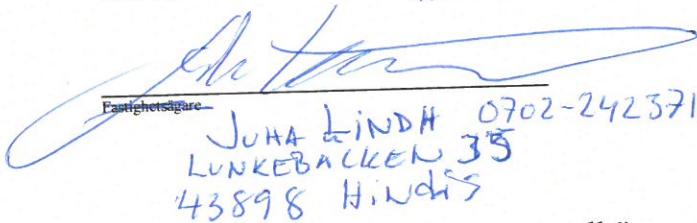 Fastighetsägare
JUHA LINDH 0702-242371
LUNKEBACKEN 35
43898 HINDÅS